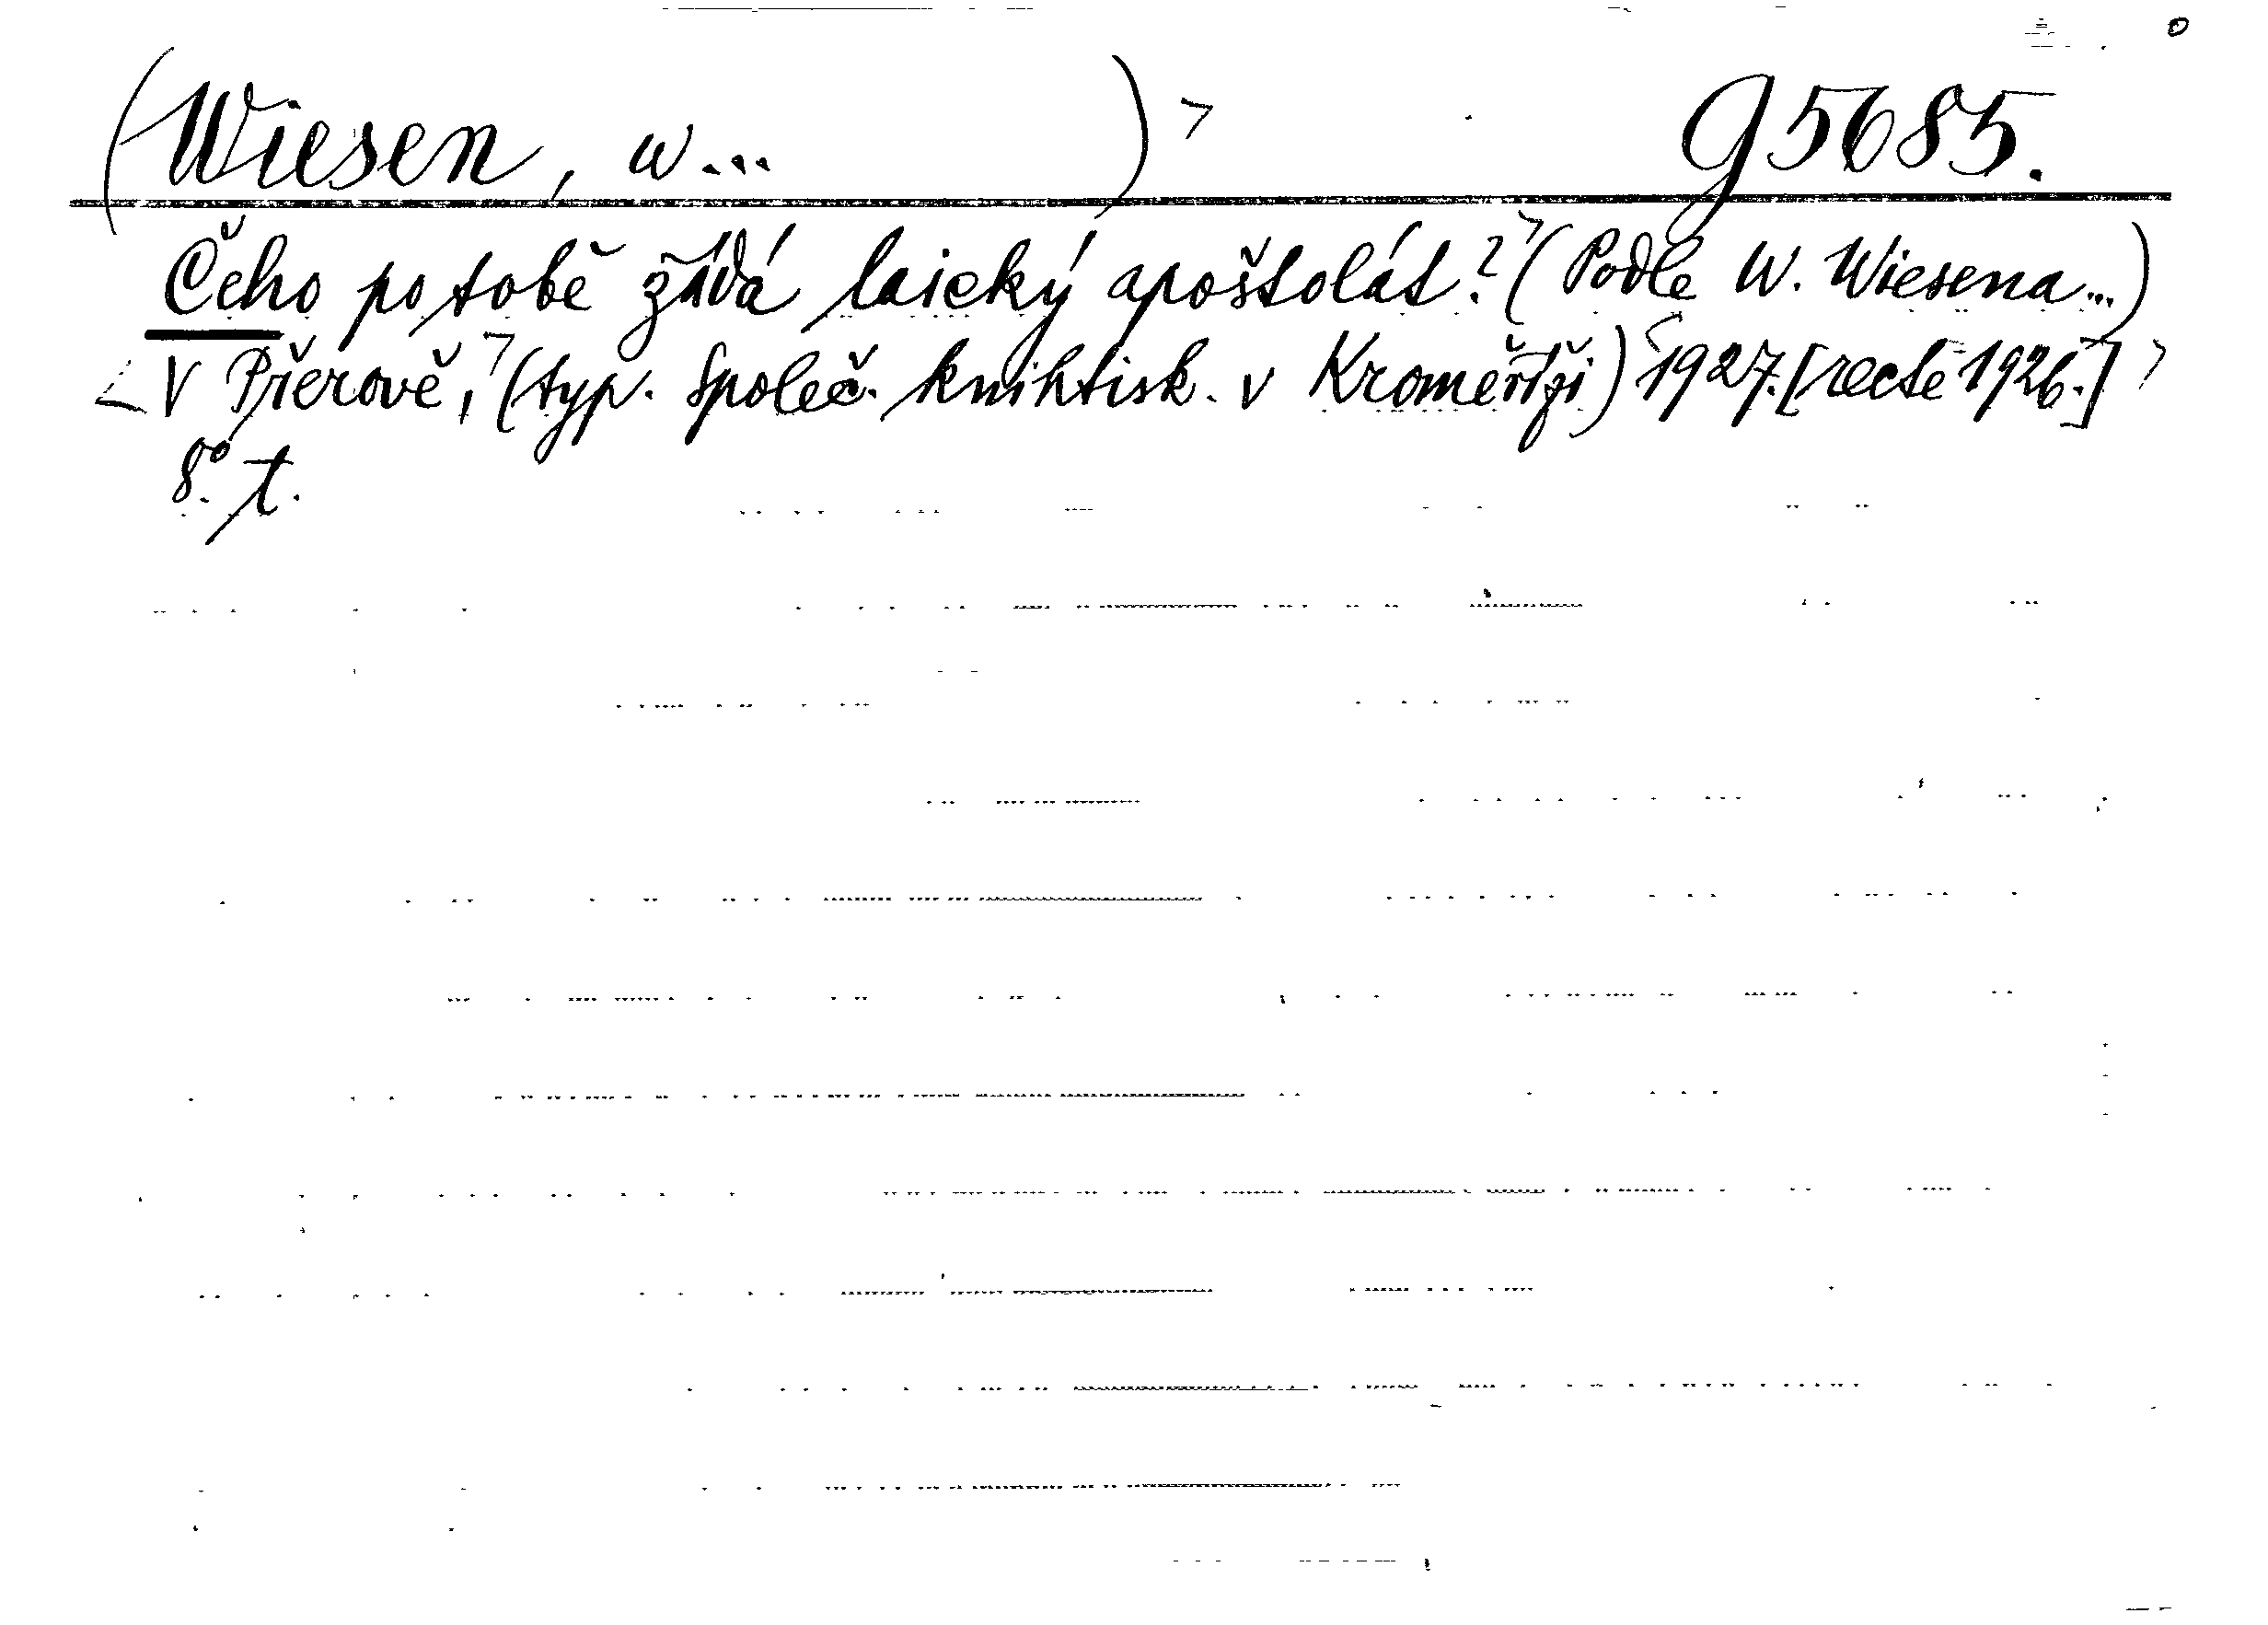 (Wiesen, W...) G 5685.
Čeho po tobě žádá laický apoštolát? (Podle W. Wiesena...)
V Přerově, (typ. Společ. knihtisk. v Kroměříži) 1927. [recte 1926.]
8° t.